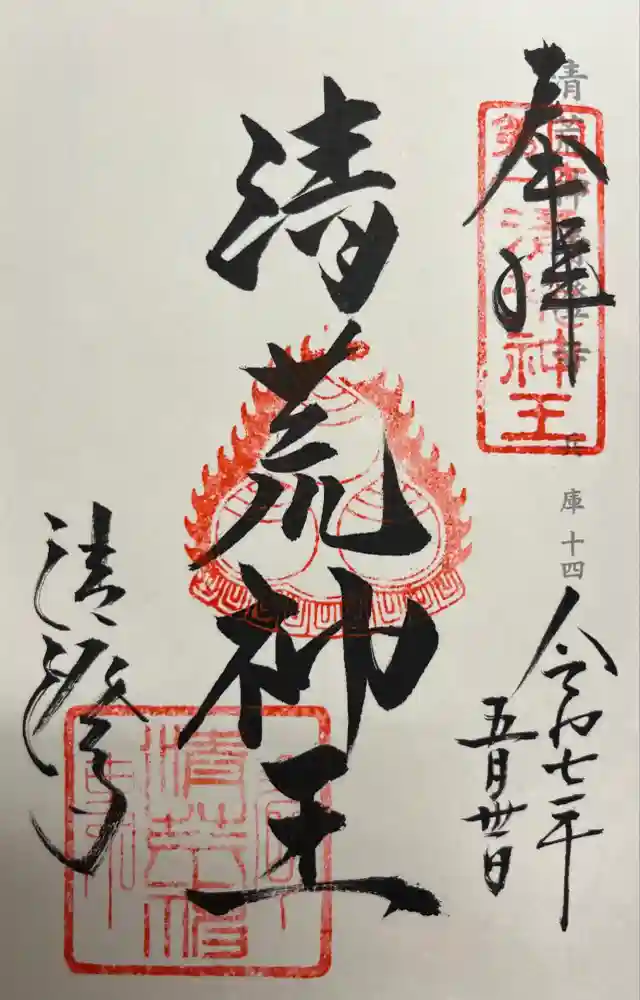 奉拝
清荒神清澄寺
兵庫十四
清荒神王
令和七年
五月丗日
清荒神王
清澄寺
清荒神